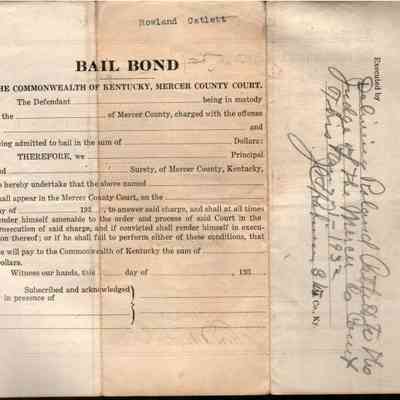 Rowland Catlett
BAIL BOND
THE COMMONWEALTH OF KENTUCKY, MERCER COUNTY COURT.
The Defendant being in custody
the of Mercer County, charged with the offense
and
ing admitted to bail in the sum of Dollars:
THEREFORE, we Principal
d Surety, of Mercer County, Kentucky,
o hereby undertake that the above named
all appear in the Mercer County Court, on the
ay of , 193 , to answer said charge, and shall at all times
ender himself amenable to the order and process of said Court in the
rosecution of said charge, and if convicted shall render himself in execu-
on thereof; or if he shall fail to perform either of these conditions, that
e will pay to the Commonwealth of Kentucky the sum of
ollars.
Witness our hands, this day of , 193
Subscribed and acknowledged
in presence of
Executed by
Roland Catlett to the
Judge of the Mercer Co Court
This 1932
Co., Ky.